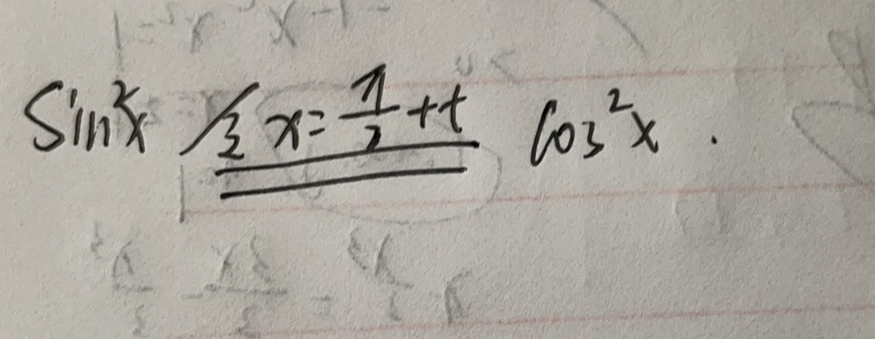 Sin²x 令 x = π/2 + t cos²x.